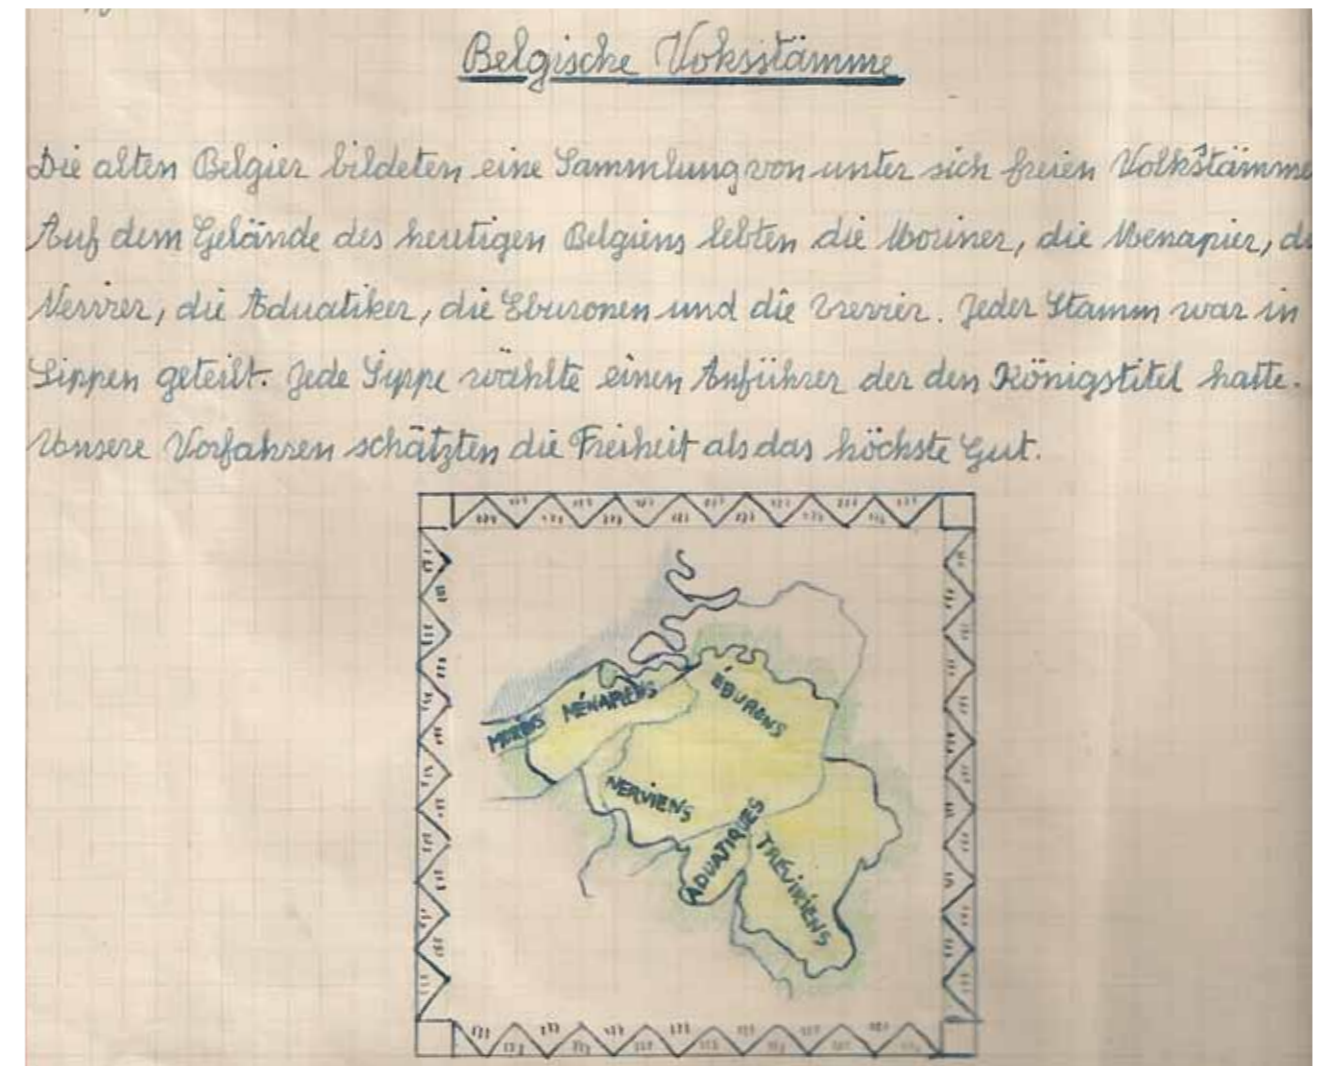 Belgische Voksstämme
Die alten Belgier bildeten eine Sammlung von unter sich freien Volkstämme
Auf dem Gelände des heutigen Belgiens lebten die Moriner, die Menapier, di
Nervier, die Aduatiker, die Eburonen und die Trevirer. Jeder Stamm war in
Sippen geteilt. Jede Sippe wählte einen Anführer der den Königstitel hatte.
Unsere Vorfahren schätzten die Freiheit als das höchste Gut.
MORINS MÉNAPIENS
ÉBURONS
NERVIENS
ADUATIQUES
TRÉVIRIENS